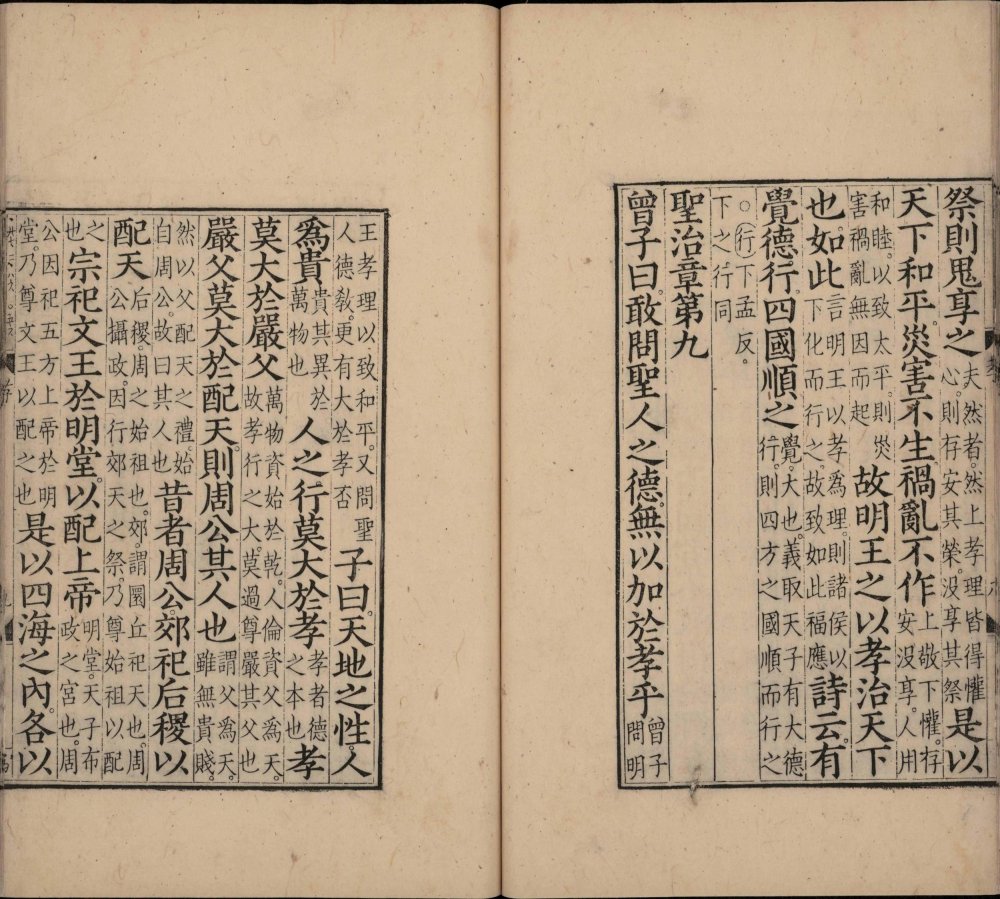 祭則鬼享之夫然者。然上孝理皆得懽心。則存安其榮。没享其祭是以
天下和平。災害不生。禍亂不作上敬下懽。存安没享。人用
和睦。以致太平。則災害禍亂無因而起故明王之以孝治天下
也如此言明王以孝爲理。則諸侯以下化而行之。故致如此福應詩云。有
覺德行。四國順之覺。大也。義取天子有大德行。則四方之國順而行之
○行下孟反。下之行同
聖治章第九
曾子曰。敢問聖人之德。無以加於孝乎曾子問明
王孝理以致和平。又問聖人德教。更有大於孝否子曰。天地之性。人
爲貴貴其異於萬物也人之行莫大於孝孝者德之本也孝
莫大於嚴父萬物資始於乾。人倫資父爲天。故孝行之大。莫過尊嚴其父也
嚴父莫大於配天。則周公其人也謂父爲天。雖無貴賤。
然以父配天之禮。始自周公。故曰其人也昔者周公。郊祀后稷以
配天后稷。周之始祖也。郊。謂圜丘祀天也。周公攝政。因行郊天之祭。乃尊始祖以配
之也宗祀文王於明堂。以配上帝明堂。天子布政之宮也。周
公因祀五方上帝於明堂。乃尊文王以配之也是以四海之內。各以